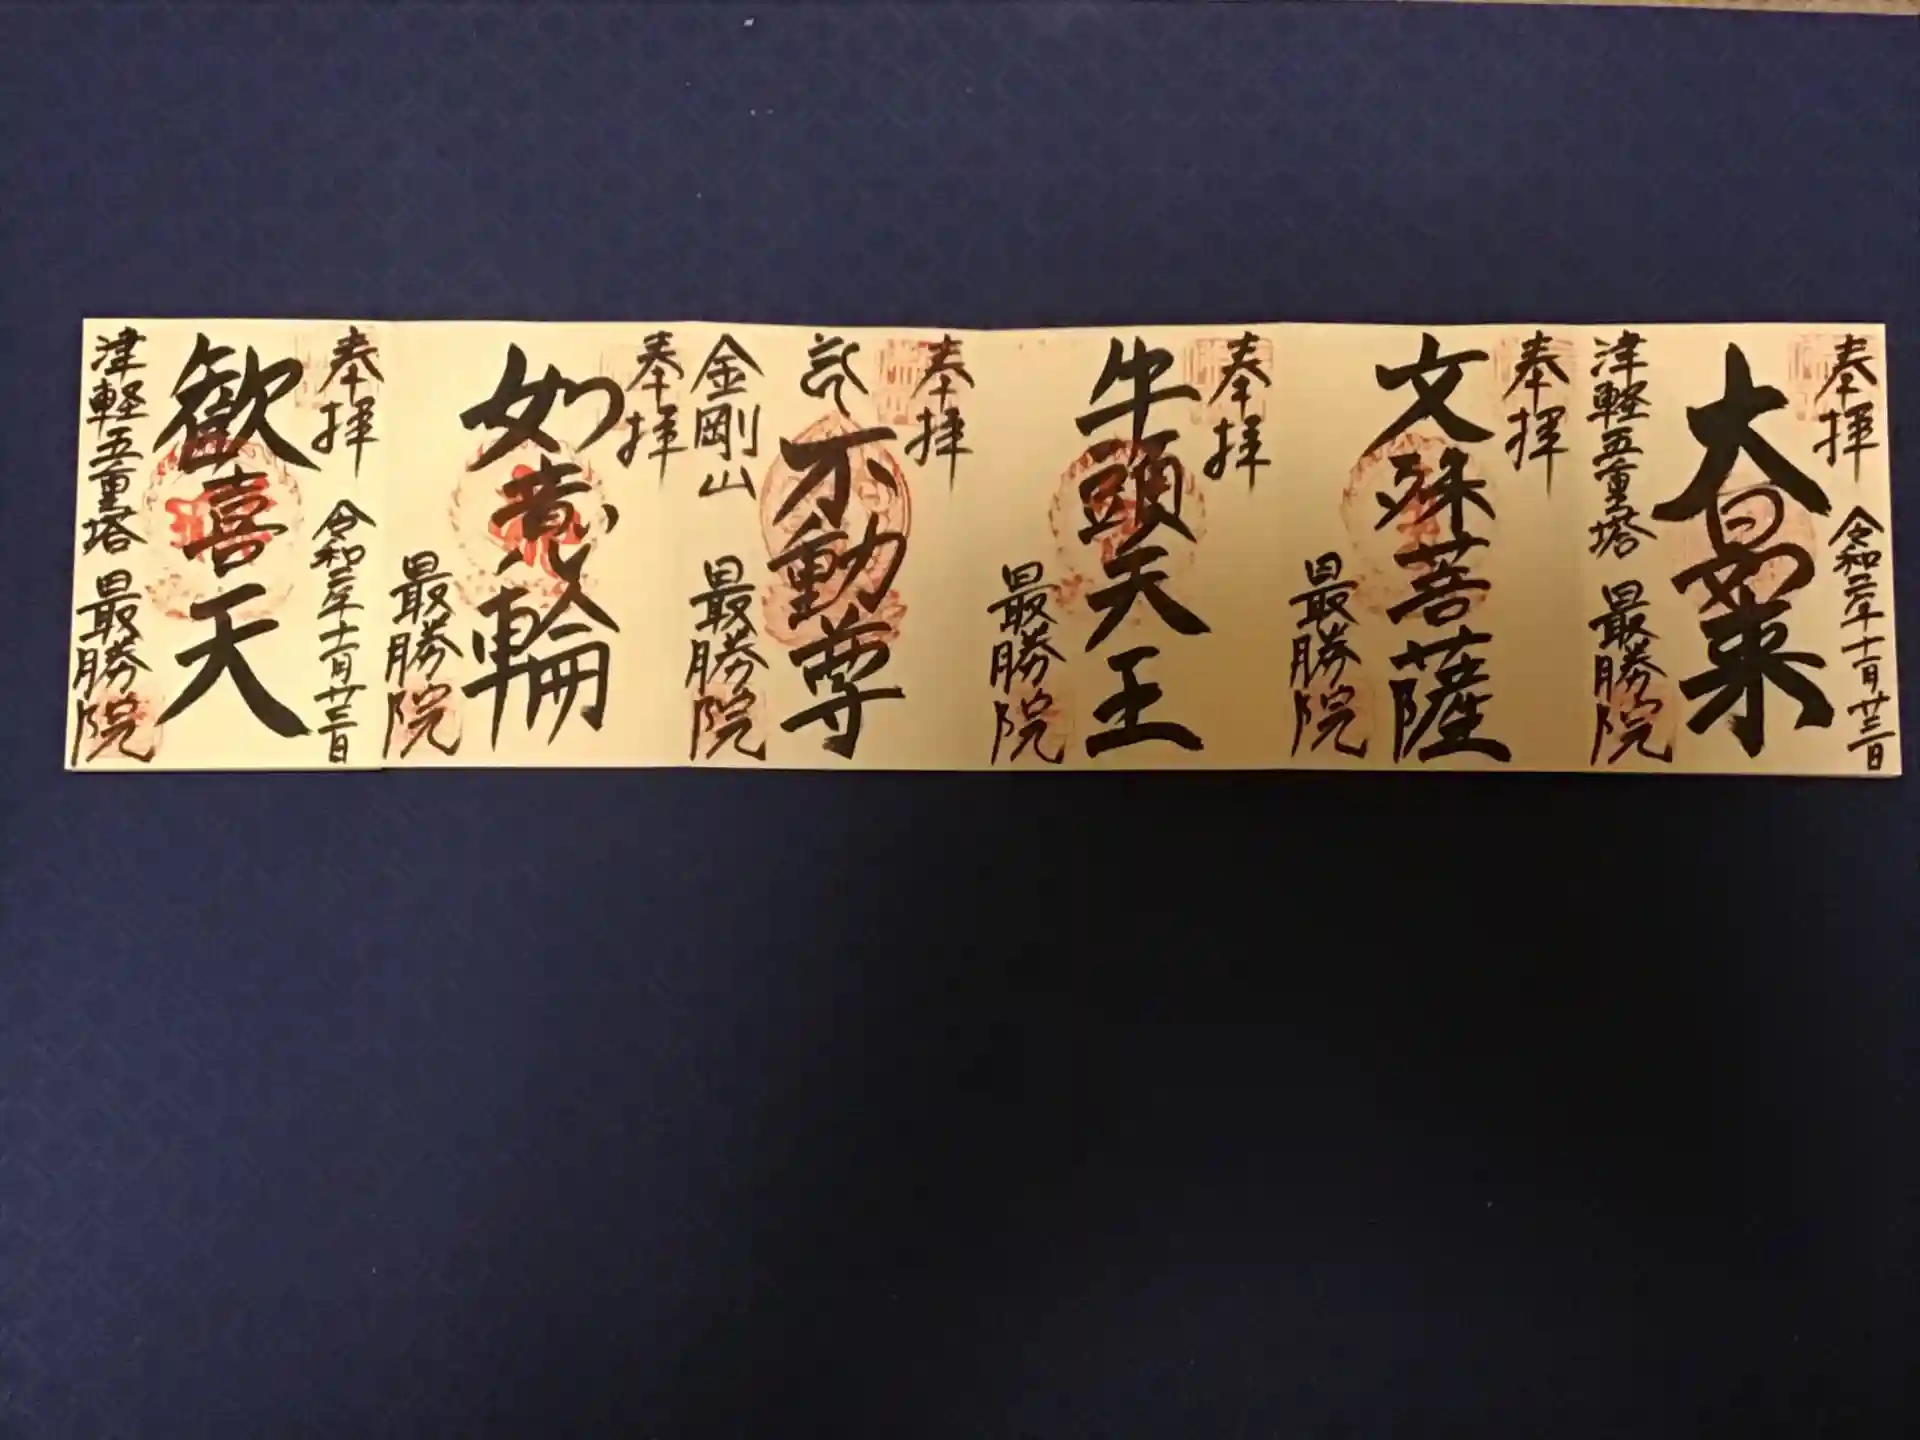 奉拝
令和二年十一月廿三日
大日如来
津軽五重塔
最勝院
奉拝
文殊菩薩
最勝院
奉拝
牛頭天王
最勝院
奉拝
不動尊
金剛山
最勝院
奉拝
如意輪
最勝院
奉拝
令和二年十一月廿三日
歓喜天
津軽五重塔
最勝院